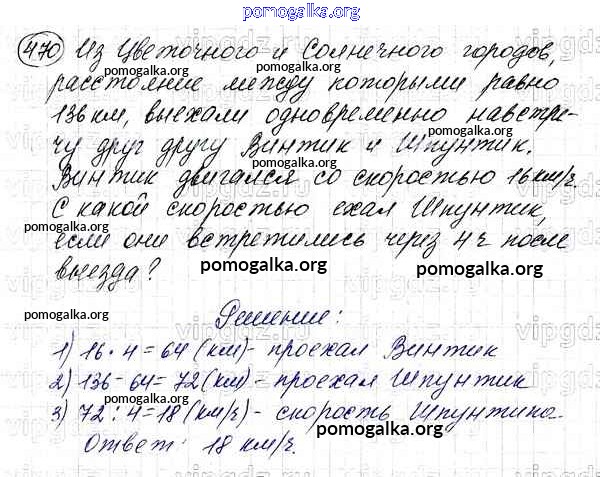 pomogalka.org
470 Из Цветочного и Солнечного городов,
pomogalka.org pomogalka.org
расстояние между которыми равно
pomogalka.org pomogalka.org
136 км, выехали одновременно навстре-
pomogalka.org
чу друг другу Винтик и Шпунтик.
Винтик двигался со скоростью 16 км/ч.
pomogalka.org
С какой скоростью ехал Шпунтик,
если они встретились через 4 ч после
выезда? pomogalka.org pomogalka.org
pomogalka.org Решение:
1) 16 · 4 = 64 (км) - проехал Винтик
2) 136 - 64 = 72 (км) - проехал Шпунтик
3) 72 : 4 = 18 (км/ч) - скорость Шпунтика.
Ответ: 18 км/ч. pomogalka.org
pomogalka.org